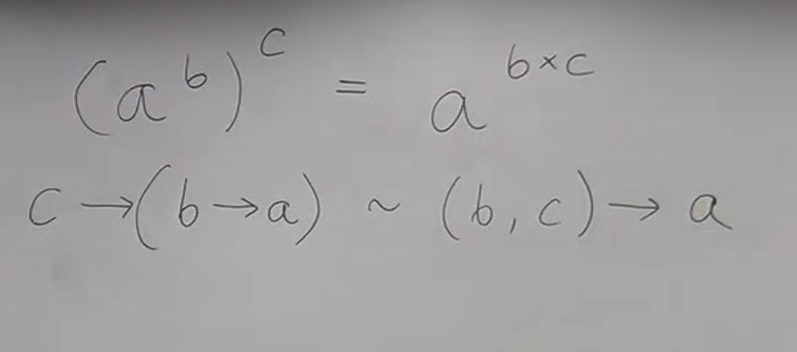 (a^b)^c = a^{b×c}
c → (b → a) ~ (b, c) → a